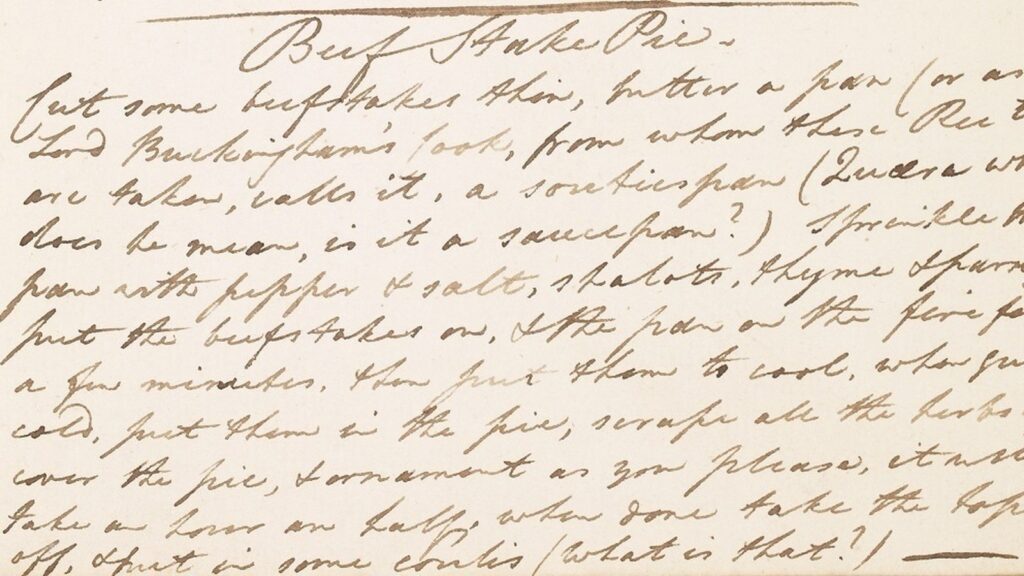 Beef Stake Pie.
Cut some beefstakes thin, butter a pan (or as
Lord Buckingham's Cook, from whom these
are taken, calls it, a soutiespan (Quæra
does he mean, is it a saucepan?) Sprinkle
pan with pepper & salt, shalots, thyme &
put the beefstakes on, & the pan on the fire
a few minutes, then put them to cool, when
cold, put them in the pie, scrape all the herbs
cover the pie, & ornament as you please, it will
take an hour an half, when done take the top
off, & put in some coulis (what is that?)